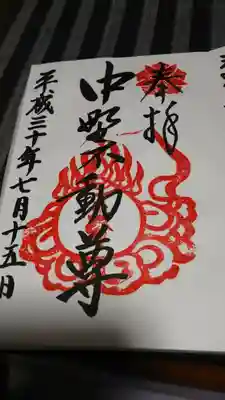 奉拝
中紫動尊
平成三十年七月十五日